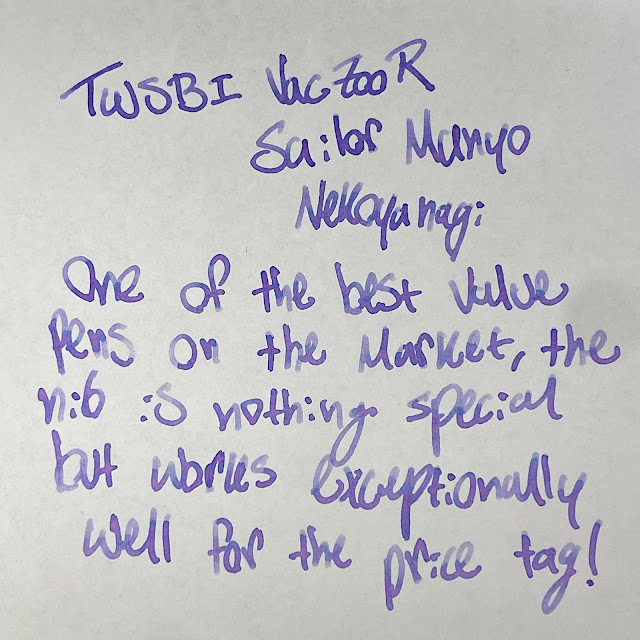 TWSBI Vac 700 R
Sailor Manyo
Nekoyanagi
One of the best value
pens on the market, the
nib is nothing special
but works exceptionally
well for the price tag!